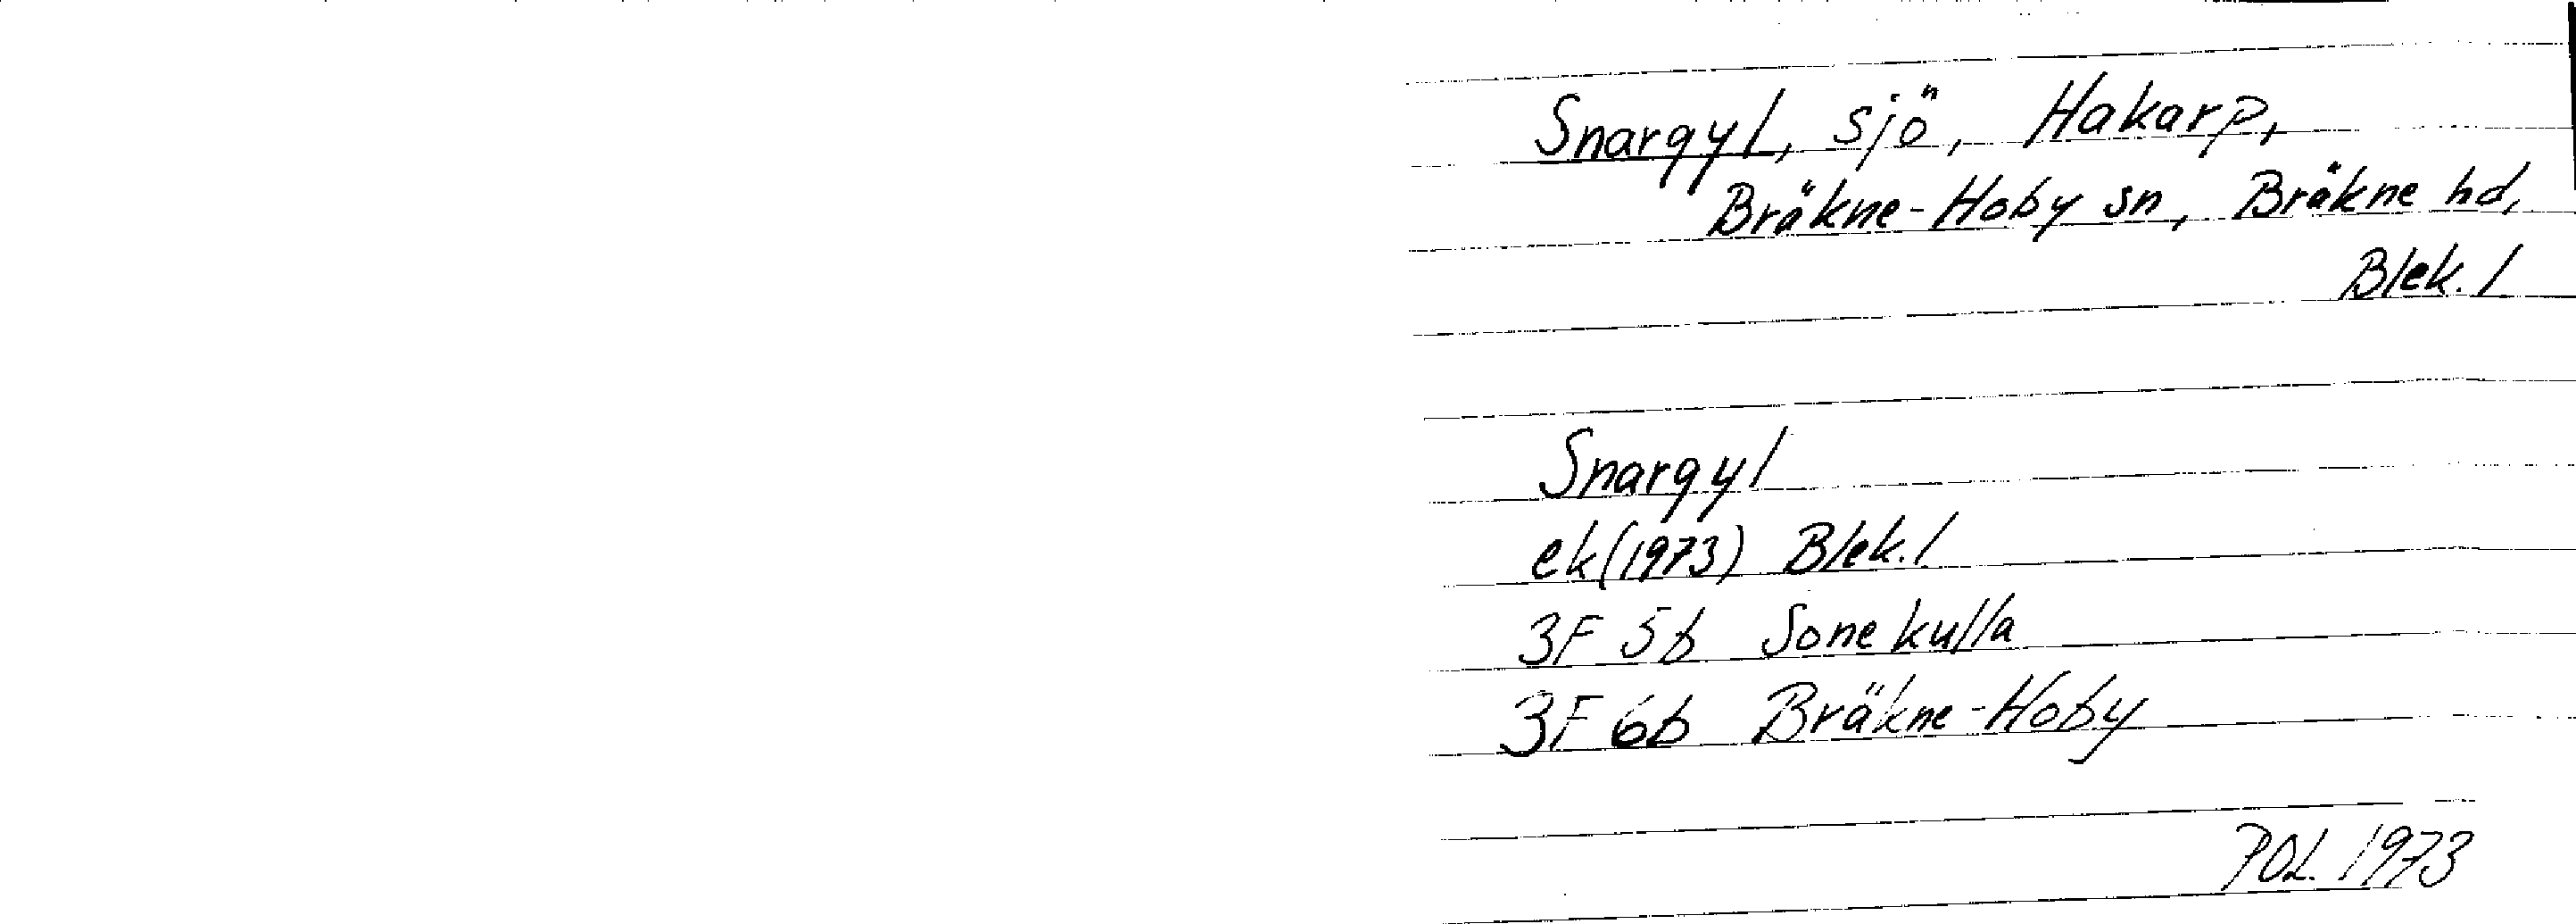 Snargyl, sjö, Hakarp,
Bräkne-Hoby sn, Bräkne hd,
Blek. l
Snargyl
ek (1973) Blek. l
3F 5b Sonekulla
3F 6b Bräkne-Hoby
POL 1973